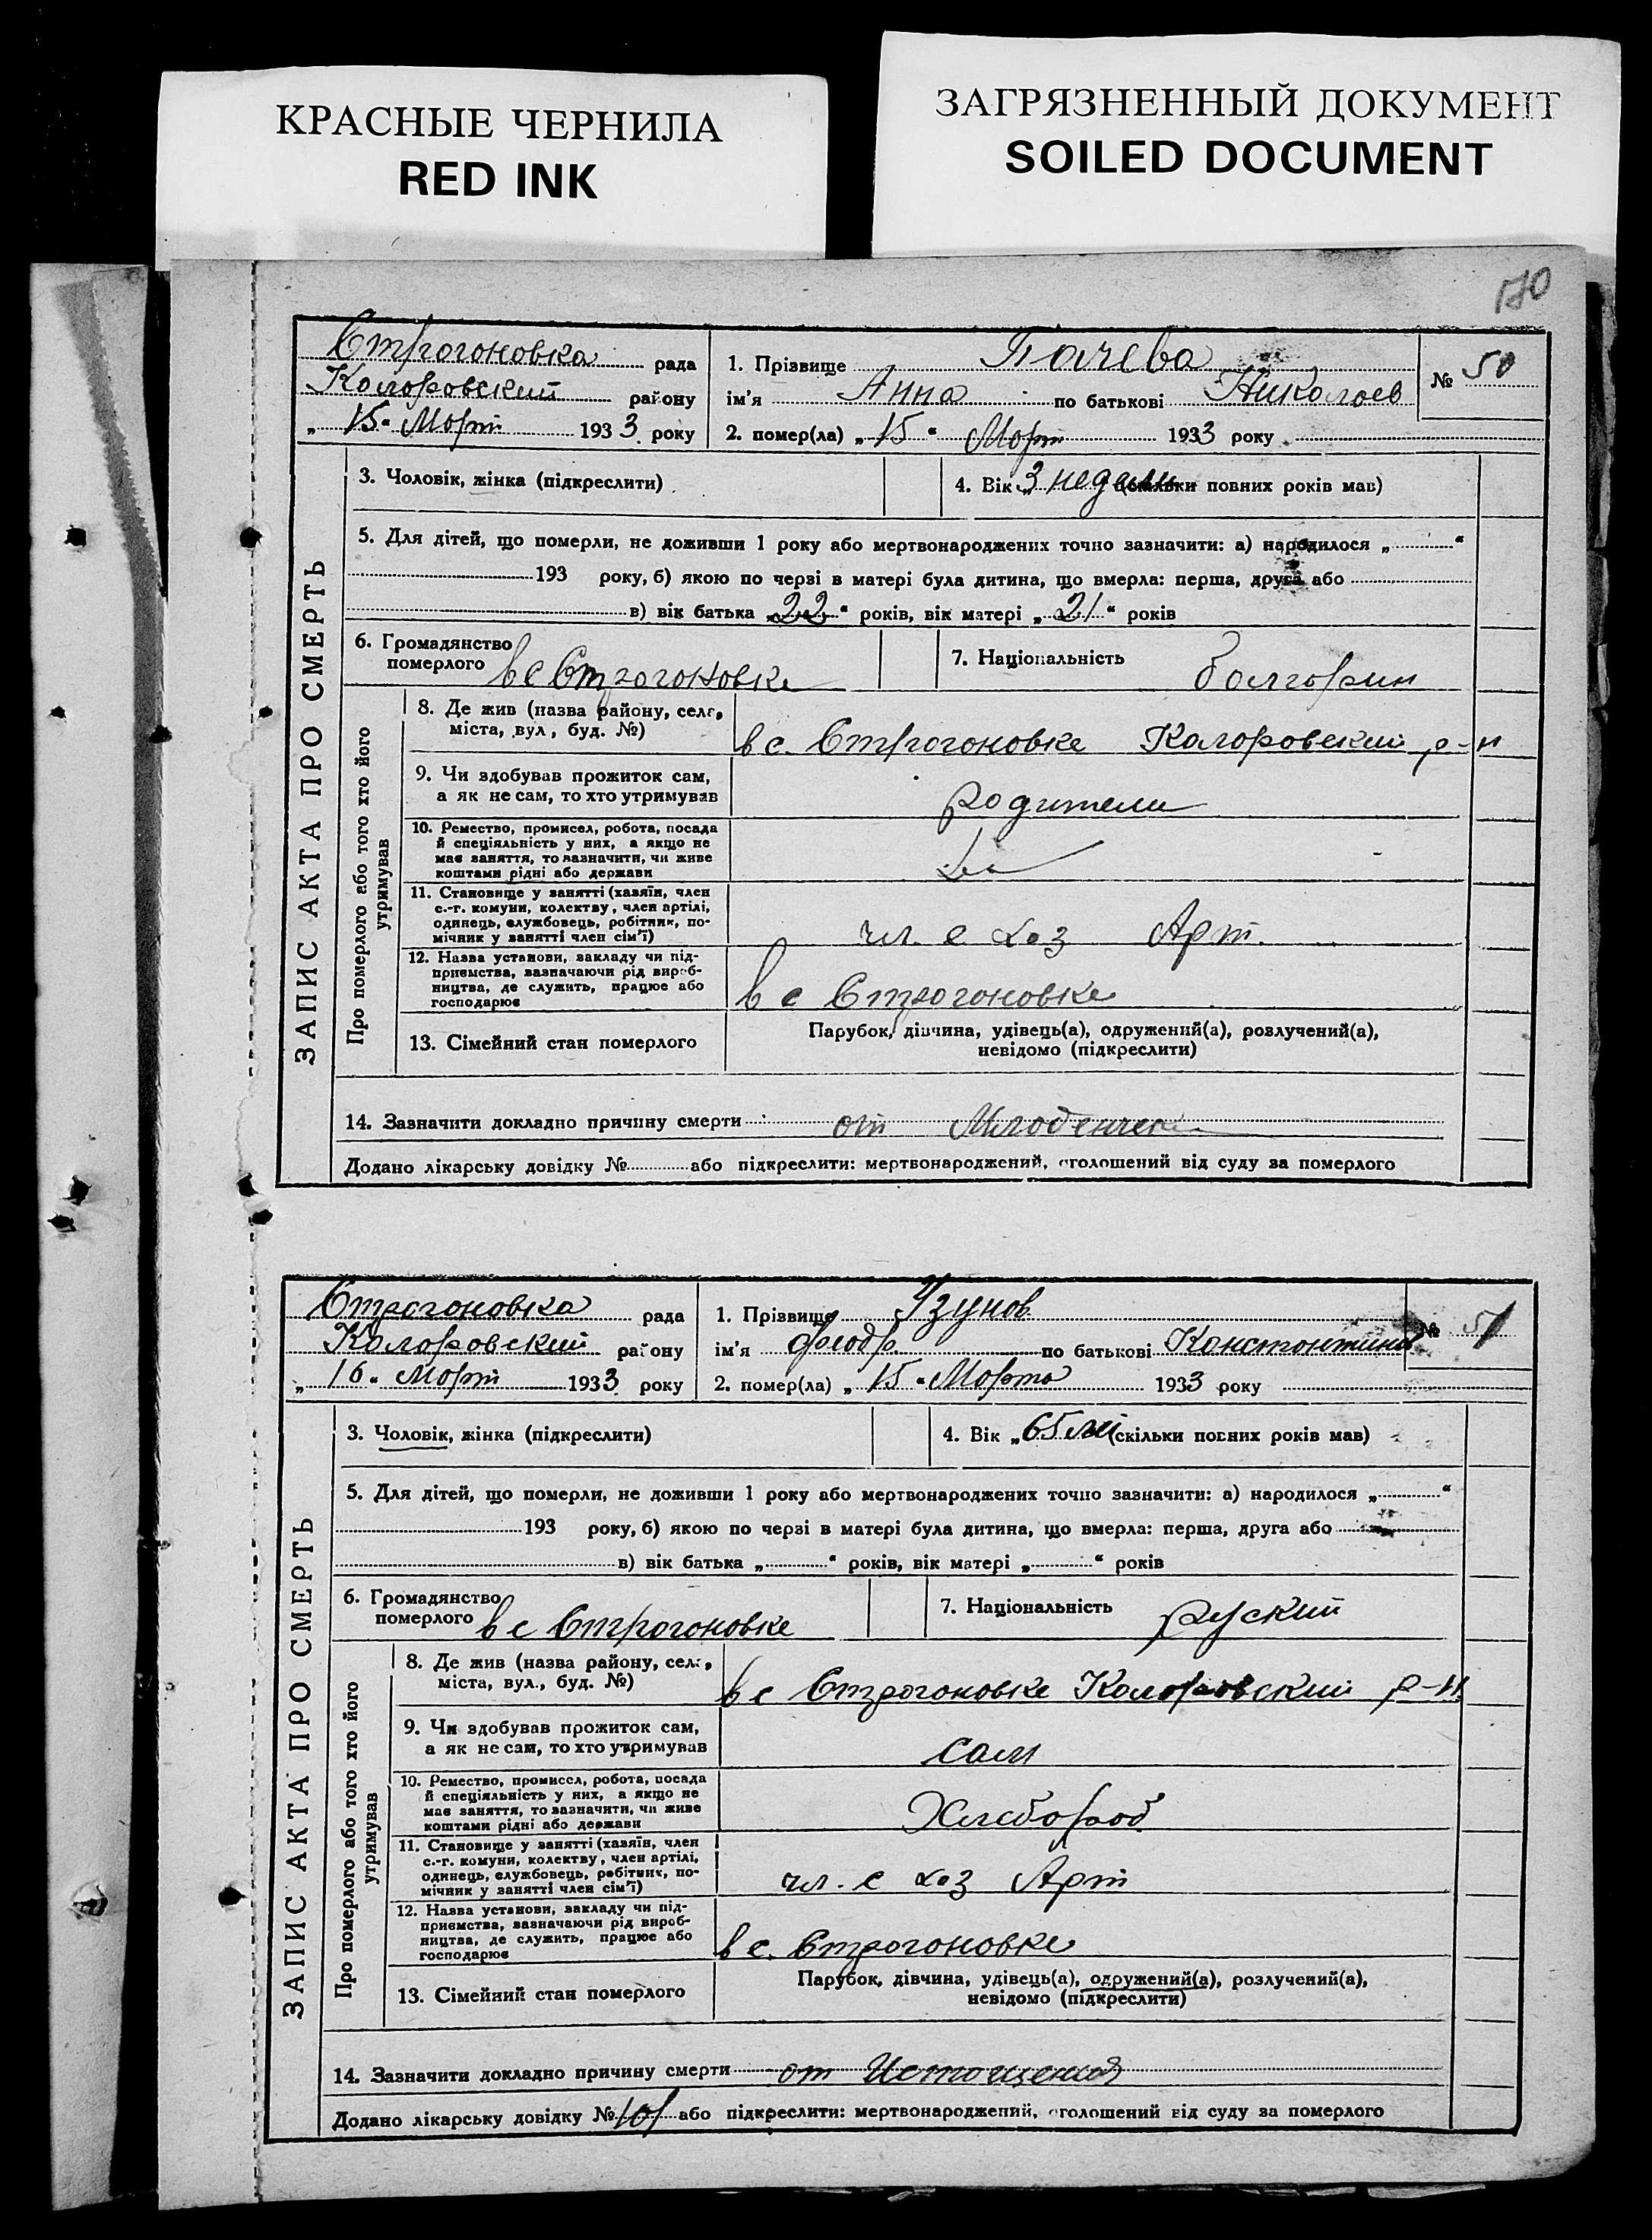 КРАСНЫЕ ЧЕРНИЛА
RED INK
ЗАГРЯЗНЕННЫЙ ДОКУМЕНТ
SOILED DOCUMENT
170
Строгоновка рада
Колоровский району
„15“ Март 1933 року
1. Прізвище Пачева
ім'я Анна по батькові Николоев
2. помер(ла) „15“ Март 1933 року
№ 50
ЗАПИС АКТА ПРО СМЕРТЬ
3. Чоловік, жінка (підкреслити)
4. Вік „3 недели (скільки повних років мав)
5. Для дітей, що померли, не доживши 1 року або мертвонароджених точно зазначити: а) народилося „ “
193 року, б) якою по черзі в матері була дитина, що вмерла: перша, друга або
в) вік батька „22“ років, вік матері „21“ років
6. Громадянство
померлого в с Строгоновке
7. Національність болгорин
Про померлого або того хто його
утримував
8. Де жив (назва району, села,
міста, вул., буд. №)
в с. Строгоновке Колоровский р-н
9. Чи здобував прожиток сам,
а як не сам, то хто утримував
родители
10. Ремество, промисел, робота, посада
й спеціяльність у них, а якщо не
має заняття, то зазначити, чи живе
коштами рідні або держави
11. Становище у занятті (хазяїн, член
с.-г. комуни, колективу, член артілі,
одинець, службовець, робітник, по-
мічник у занятті член сім'ї)
чл. с хоз Арт.
12. Назва установи, закладу чи під-
приємства, зазначаючи рід вироб-
ництва, де служить, працює або
господарює
в с Строгоновке
13. Сімейний стан померлого
Парубок, дівчина, удівець(а), одружений(а), розлучений(а),
невідомо (підкреслити)
14. Зазначити докладно причину смерти от
Додано лікарську довідку № або підкреслити: мертвонароджений, оголошений від суду за померлого
Строгоновка рада
Колоровский району
„16“ Март 1933 року
1. Прізвище Узунов
ім'я Фюодр по батькові Константинов
2. помер(ла) „15“ Марта 1933 року
№ 51
ЗАПИС АКТА ПРО СМЕРТЬ
3. Чоловік, жінка (підкреслити)
4. Вік „65 (скільки повних років мав)
5. Для дітей, що померли, не доживши 1 року або мертвонароджених точно зазначити: а) народилося „ “
193 року, б) якою по черзі в матері була дитина, що вмерла: перша, друга або
в) вік батька „ “ років, вік матері „ “ років
6. Громадянство
померлого в с Строгоновке
7. Національність руский
Про померлого або того хто його
утримував
8. Де жив (назва району, села,
міста, вул., буд. №)
в с Строгоновке Колоровский р-н
9. Чи здобував прожиток сам,
а як не сам, то хто утримував
сам
10. Ремество, промисел, робота, посада
й спеціяльність у них, а якщо не
має заняття, то зазначити, чи живе
коштами рідні або держави
Хлебороб
11. Становище у занятті (хазяїн, член
с.-г. комуни, колективу, член артілі,
одинець, службовець, робітник, по-
мічник у занятті член сім'ї)
чл. с хоз Арт
12. Назва установи, закладу чи під-
приємства, зазначаючи рід вироб-
ництва, де служить, працює або
господарює
в с. Строгоновке
13. Сімейний стан померлого
Парубок, дівчина, удівець(а), одружений(а), розлучений(а),
невідомо (підкреслити)
14. Зазначити докладно причину смерти от Истощения
Додано лікарську довідку № 101 або підкреслити: мертвонароджений, оголошений від суду за померлого